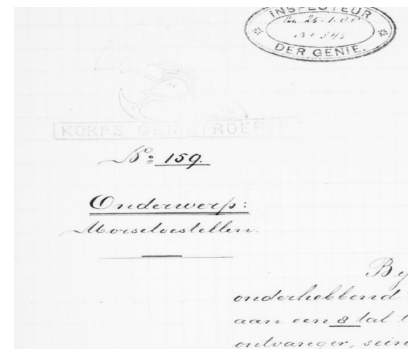 INSPECTEUR
DER GENIE.
KORPS GENIETROEPEN
No. 159.
Onderwerp:
Morsetoestellen.
By
onderhebbend
aan een 8 tal
ontvanger, sein